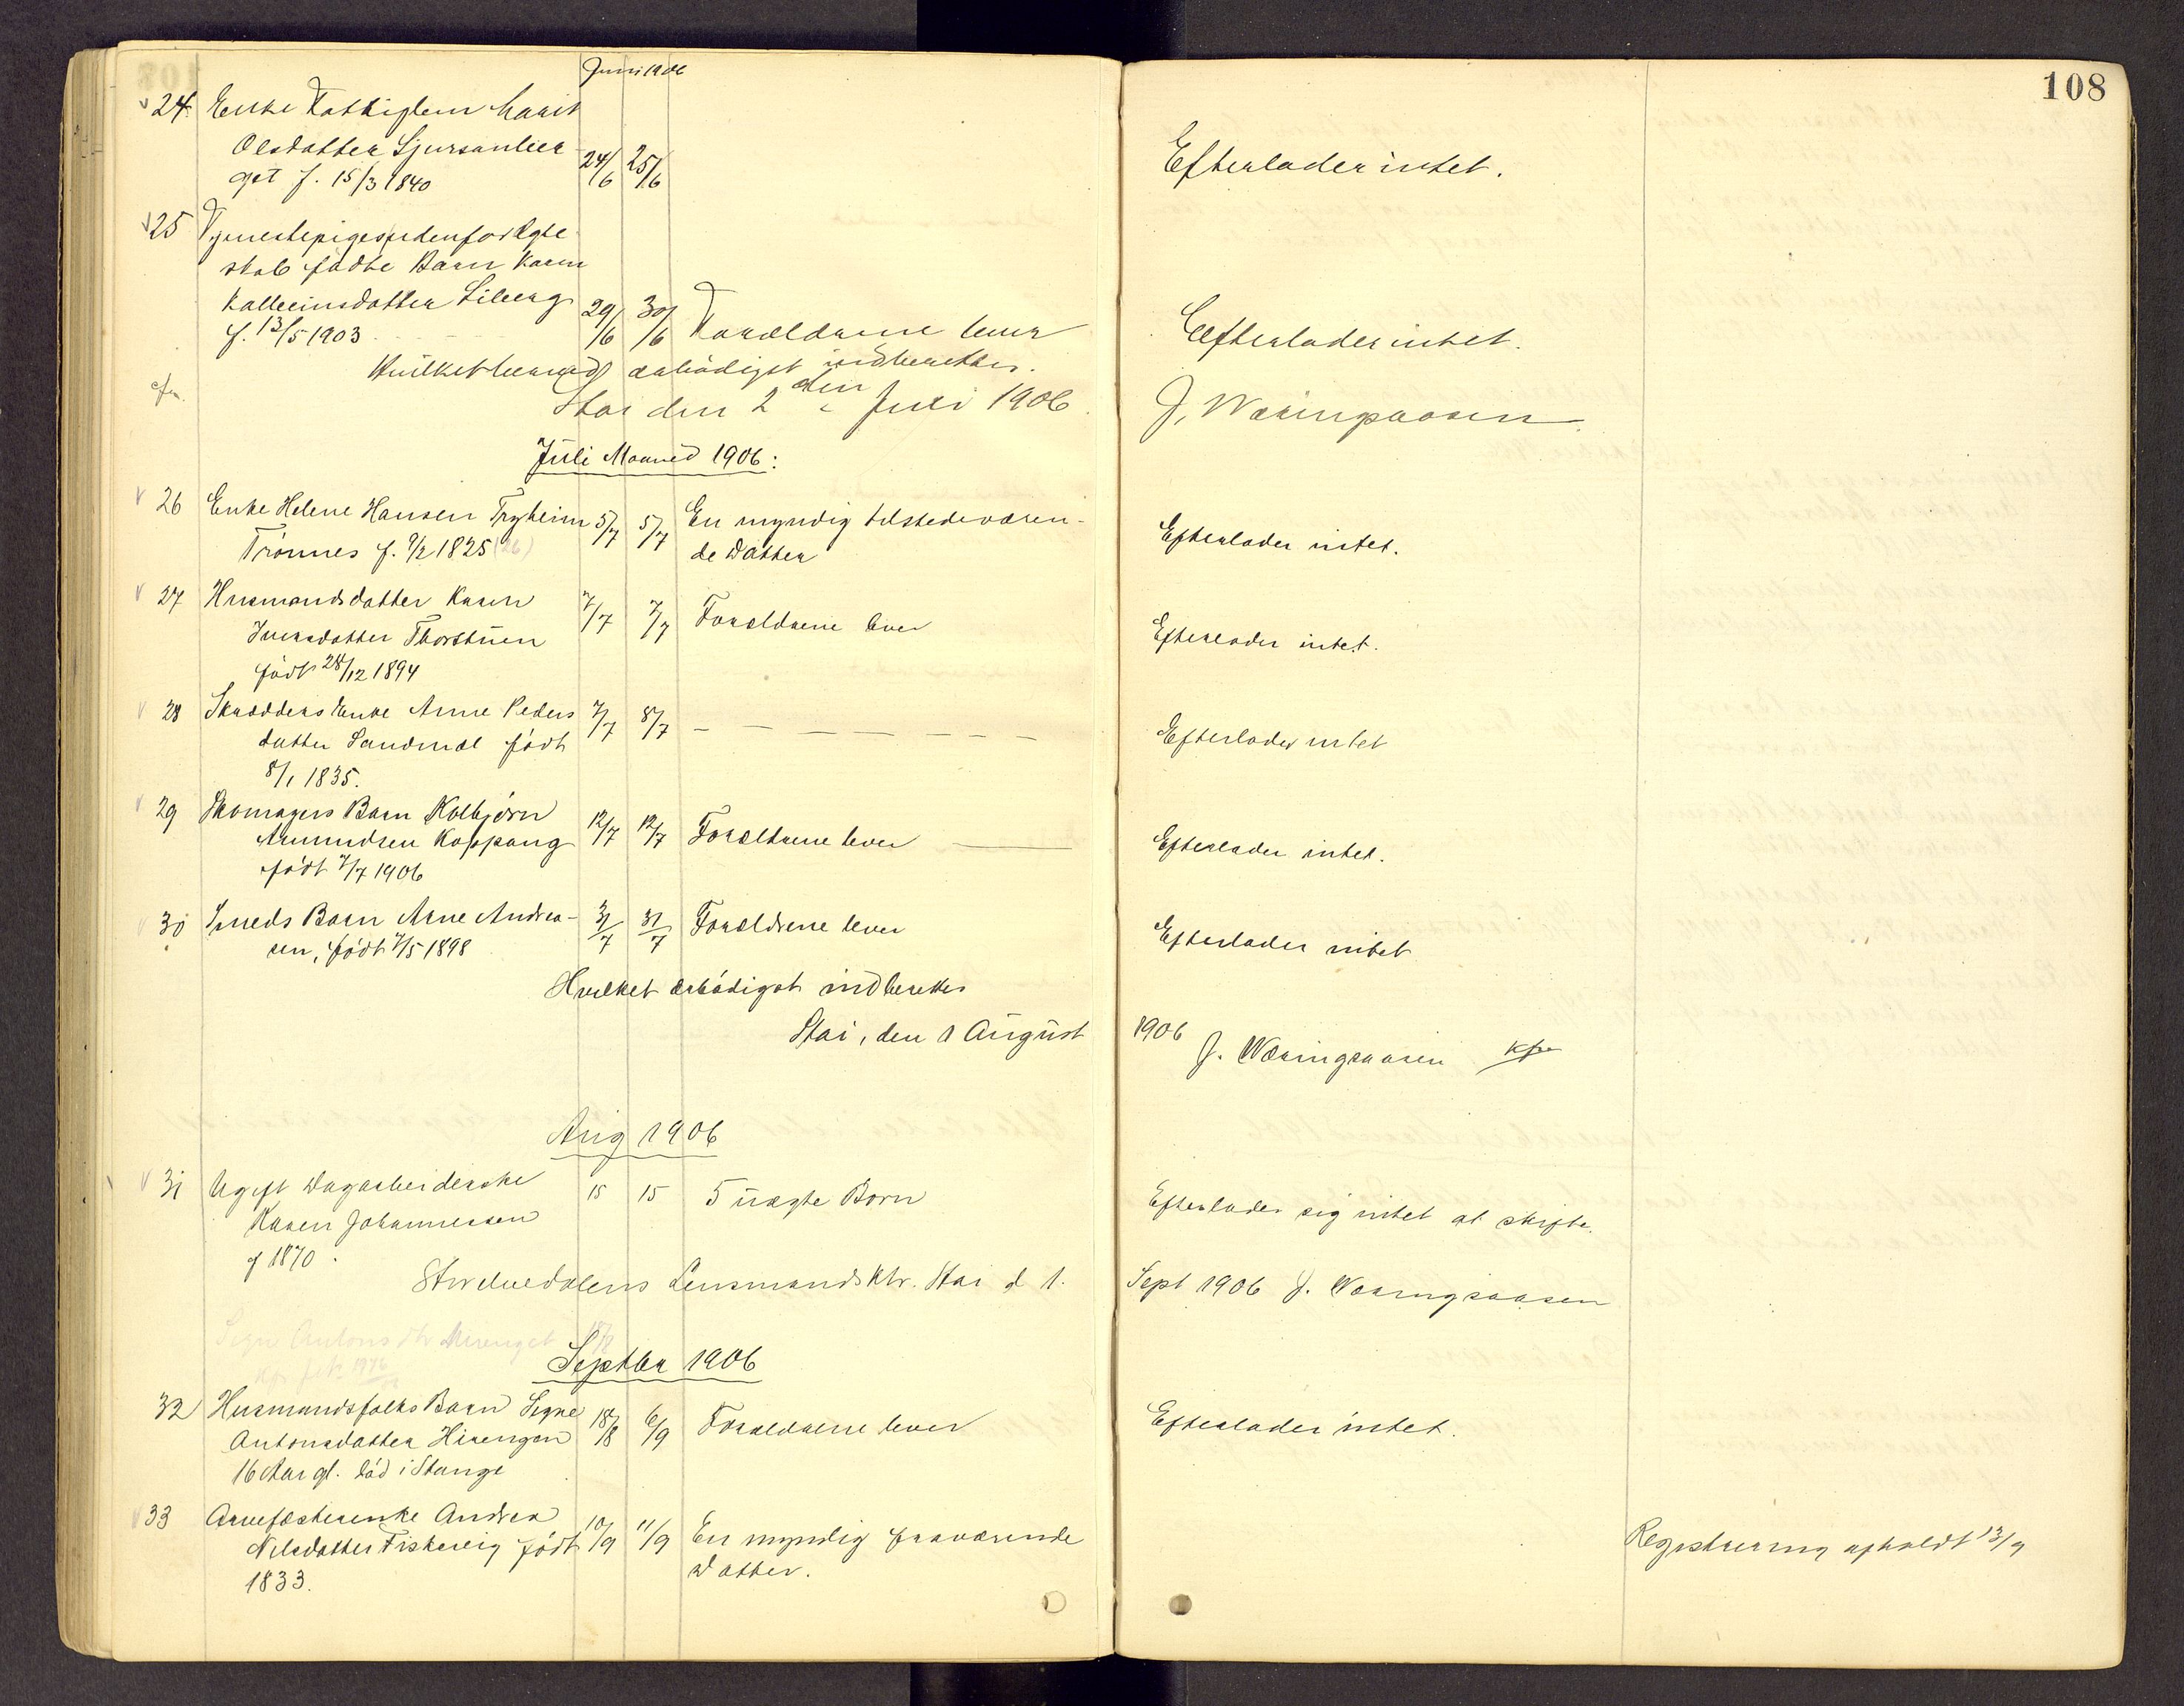 108
Juni 1906
24 Enke Fattiglem Marit
Olsdatter Sjursanber
get f. 15/3 1840
24/6 25/6
Efterlader intet.
25 Tjenestepiges udenfor Ægte
skab fødte Barn Karen
Kalleinsdatter Liberg
f. 13/5 1903
29/6 30/6 Forældrene lever
Efterlader intet.
Hvilket herved ærbødigst indberettes.
Stai den 2den Juli 1906
J. Wæringsaasen
Juli Maaned 1906:
26 Enke Helene Hansen Tryheim 5/7 5/7 En myndig tilstedeværen-
Trønnes f. 9/2 1825 (26) de Datter
Efterlader intet.
27 Husmandsdatter Karen 7/7 7/7 Forældrene lever
Iversdatter Thorstuen
født 28/12 1894
Efterlader intet.
28 Skrædders Enke Anne Peders 7/7 8/7 — — — — — — —
datter Sandmæl født
8/1 1835.
Efterlader intet
29 Skomagers Barn Kolbjørn
Amundsen Koppang 12/7 12/7 Forældrene lever
født 7/7 1906
Efterlader intet.
30 Smeds Barn Arne Andrea- 31/7 31/7 Forældrene lever
sen, født 7/5 1898
Efterlader intet
Hvilket ærbødigst indberettes
Stai, den 1 August 1906
J. Wæringsaasen kst
Aug 1906
31 Ugift Dagarbeiderske 15 15 5 uægte Børn
Karen Johannessen
f 1870.
Efterlader sig intet at skifte.
Storelvedalens Lensmandsktr. Stai d 1. Sept 1906 J. Wæringsaasen
Signe Antons dtr
Septbr 1906
32 Husmandsfolks Barn Signe 18/8 6/9 Forældrene lever
Antonsdatter Hirengen
16 Aar gl. død i Stange
Efterlader intet.
33 Arvefæsterenke Andrea 10/9 11/9 En myndig fraværende
Nilsdatter Fiskevig født Datter.
1833.
Registrering afholdt 13/9